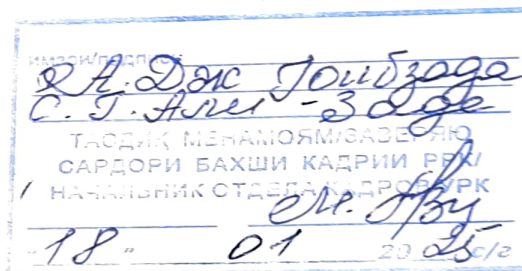 имзои/подпись
А. Дж Гоибзода
С. Г. Али-Заде
ТАСДИҚ МЕНАМОЯМ/ЗАВЕРЯЮ
САРДОРИ БАХШИ КАДРИИ РВК/
НАЧАЛЬНИК ОТДЕЛА КАДРОВ УРК
"18" 01 2025 с/г